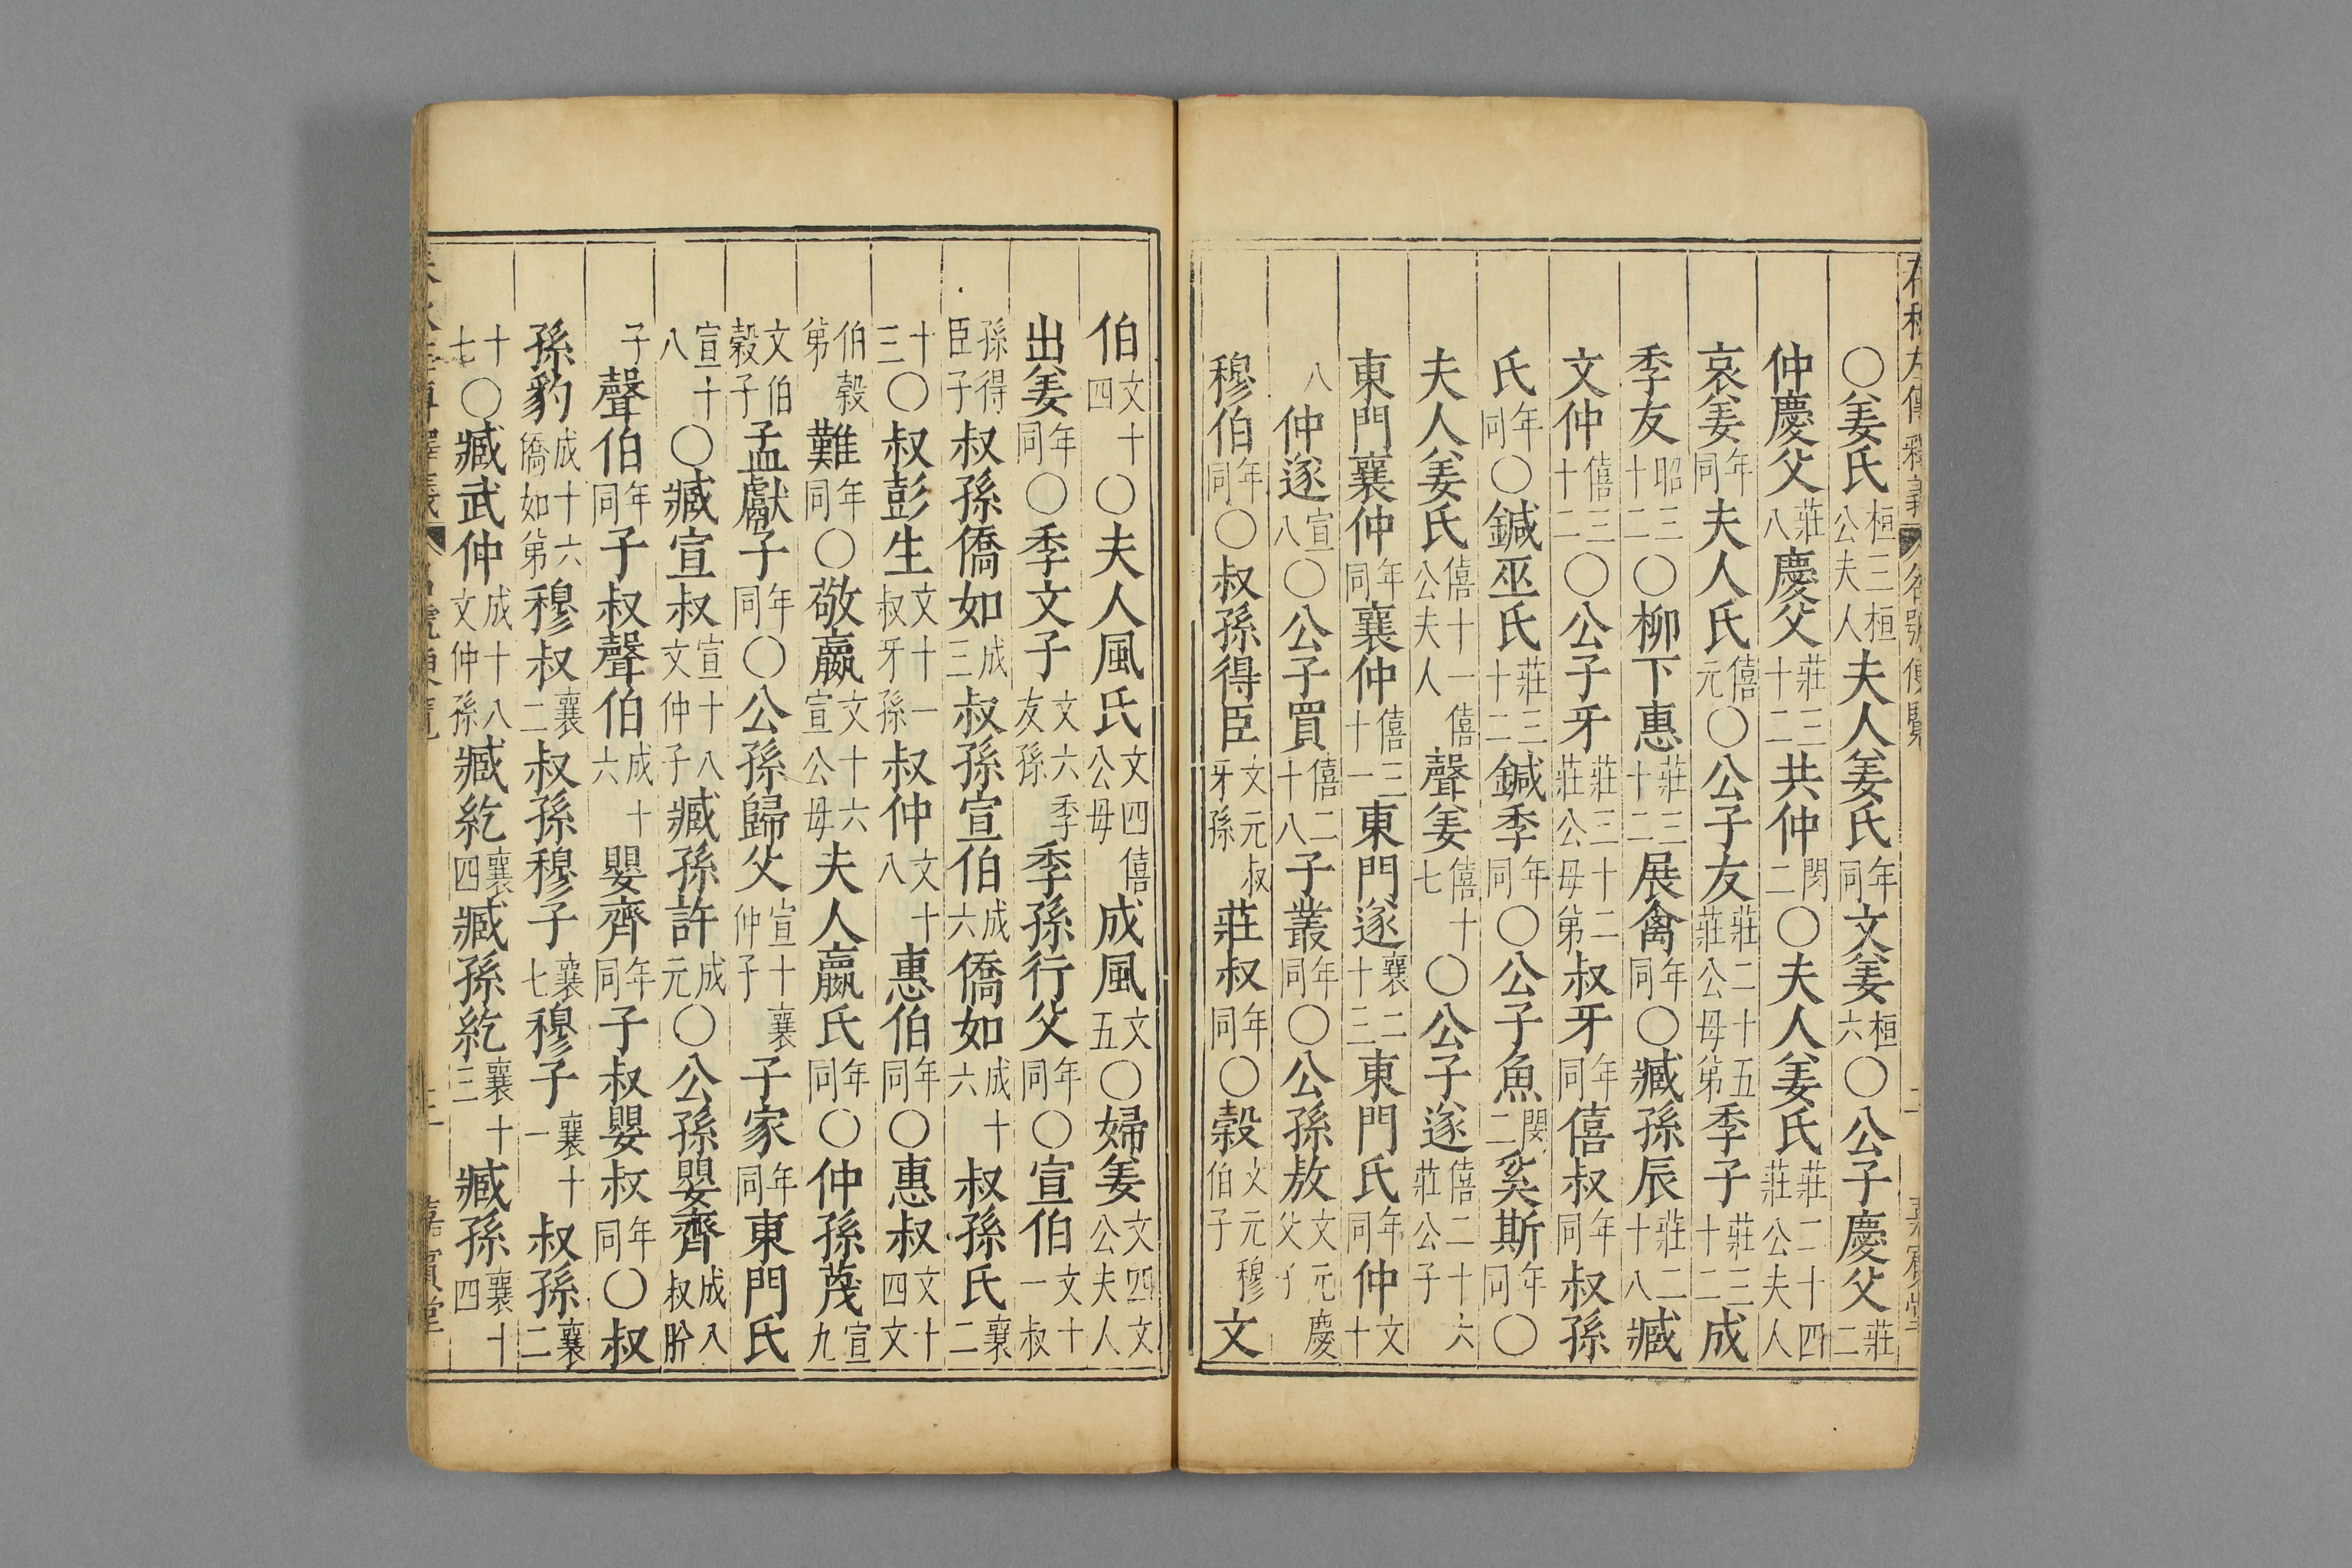 左傳釋義 名號便覽 二 嘉賓堂
○姜氏桓三桓公夫人夫人姜氏年同文姜桓六○公子慶父莊二
仲慶父莊八慶父莊三十二共仲閔二○夫人姜氏莊二十四莊公夫人
哀姜年同夫人氏僖元○公子友莊二十五莊公母第季子莊三十二成
季友昭三十二○柳下惠莊三十二展禽年同○臧孫辰莊二十八臧
文仲僖三十二○公子牙莊三十二莊公母第叔牙年同僖叔年同叔孫
氏年同○鍼巫氏莊三十二鍼季年同○公子魚閔二奚斯年同○
夫人姜氏僖十一僖公夫人聲姜僖十七○公子遂僖二十六莊公子
東門襄仲年同襄仲僖三十一東門遂襄二十三東門氏年同仲文十
八仲遂宣八○公子買僖二十八子叢年同○公孫敖文元慶父子
穆伯年同○叔孫得臣文元叔牙孫莊叔年同○榖文元穆伯子文
伯文十四○夫人風氏文四僖公母成風文五○婦姜文四文公夫人
出姜年同○季文子文六季友孫季孫行父年同○宣伯文十一叔
孫得臣子叔孫僑如成三叔孫宣伯成六僑如成十六叔孫氏襄二
十三○叔彭生文十一叔牙孫叔仲文十八惠伯年同○惠叔文十四文
伯榖第難年同○敬嬴文十六宣公母夫人嬴氏年同○仲孫蔑宣九
文伯榖子孟獻子年同○公孫歸父宣十襄仲子子家年同東門氏
宣十八○臧宣叔宣十八文仲子臧孫許成元○公孫嬰齊成八叔肹
子聲伯年同子叔聲伯成十六嬰齊年同子叔嬰叔年同○叔
孫豹成十六僑如第穆叔襄二叔孫穆子襄七穆子襄十一叔孫襄二
十七○臧武仲成十八文仲孫臧紇襄四臧孫紇襄十三臧孫襄十四